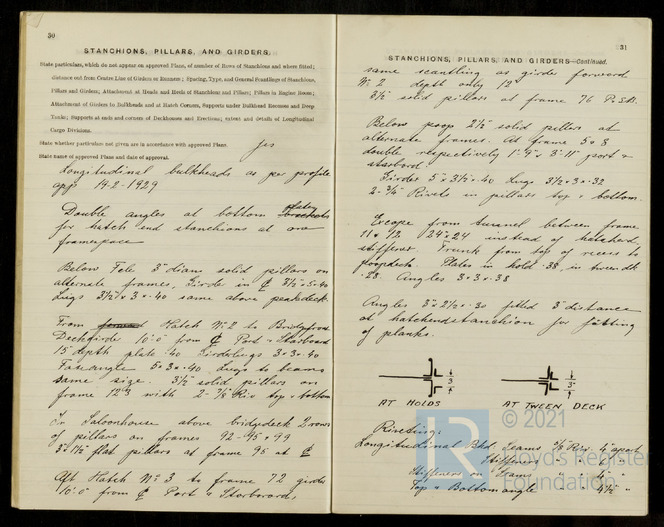 30
STANCHIONS, PILLARS, AND GIRDERS.
State particulars, which do not appear on approved Plans, of number of Rows of Stanchions and where fitted;
distance out from Centre Line of Girders or Runners; Spacing, Type, and General Scantlings of Stanchions,
Pillars and Girders; Attachment at Heads and Heels of Stanchions and Pillars; Pillars in Engine Room;
Attachment of Girders to Bulkheads and at Hatch Corners, Supports under Bulkhead Recesses and Deep
Tanks; Supports at ends and corners of Deckhouses and Erections; extent and details of Longitudinal
Cargo Divisions.
State whether particulars not given are in accordance with approved Plans. yes
State name of approved Plans and date of approval.
Longitudinal bulkheads as per profile
app 19-2-1929
Double angles at bottom
for hatch end stanchions at one
framespace
Below Fcle 3" diam solid pillars on
alternate frames, Girde in ℄ 3½ × 5 ·40
Lugs 3½ × 3 × ·40 same above peakdeck
From Hatch No 2 to Bridgefront
Deckgirde 10'·0" from ℄ Port & Starboard
15" depth plate ·40 Girderlugs 3 × 3 × ·40
Face angle 5 × 3 × ·40 Lugs to beams
same size. 3½ solid pillars on
frame 123 with 2 - 7/8 Riv top & bottom
In Saloonhouse above bridgedeck 2 rows
of pillars on frames 92-95 & 99
3 × 1½ flat pillars at frame 95 at ℄
Aft Hatch No 3 to frame 72 girder
10'·0" from ℄ Port & Starboard,
31
STANCHIONS, PILLARS, AND GIRDERS—Continued.
same scantling as girder forward
No 2 depth only 12"
3½ solid pillars at frame 76 P & SB.
Below poop 2½" solid pillars at
alternate frames. At frame 5 & 8
double respectively 1' 9" & 3' 11" port &
starbord
Girder 5" × 3½ × ·40 Lugs 3½ × 3 × ·32
2 - ¾ Rivets in pillars top & bottom.
Escape from tunnel between frame
11 & 12 24 × 24 instead of hatchard
stiffener Trunk from top of recess to
poopdeck Plates in hold ·38, in tweendk
·28. Angles 3 × 3 × ·38
Angles 3" × 2½ × ·30 fitted 3" distance
at hatchendstanchion for fitting
of planks.
3"
3"
AT HOLDS
AT TWEEN DECK
Riveting:
Longitudinal Bhd. Seams Riv. apart
Stiffeners
Stiffeners on Seams
Top & Bottom angle 4½
© 2021
LR
Lloyd's Register
Foundation